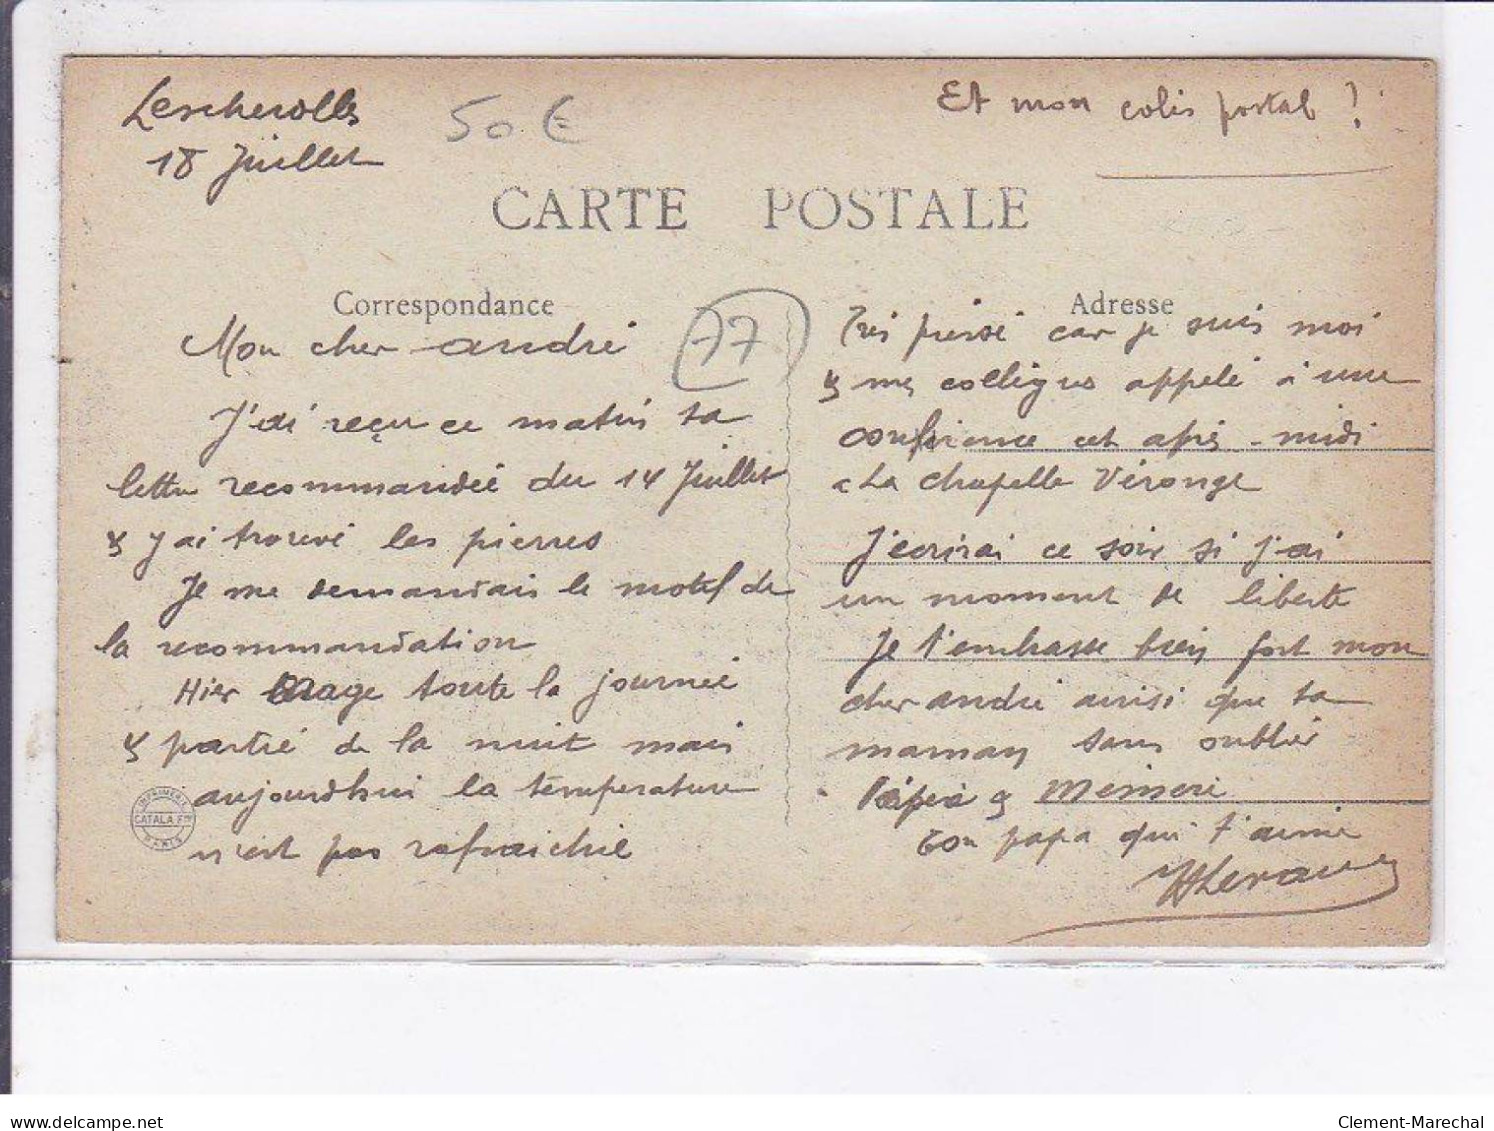 Lescherolles
18 Juillet
50 €
Et mon colis postal ?
CARTE POSTALE
Correspondance
Mon cher andré
77
J'ai reçu ce matin ta
lettre recommandée du 14 Juillet
& j'ai trouvé les pierres
Je me demandais le motif de
la recommandation
Hier orage toute la journée
& partie de la nuit mais
aujourdhui la température
n'est pas rafraichie
IMPRIMERIE
CATALA Fres
PARIS
Adresse
Très pressé car je suis moi
& mes collègues appelé à une
conférence cet après-midi
a La chapelle Véronge
J'ecrirai ce soir si j'ai
un moment de liberté
Je t'embrasse bien fort mon
cher andré ainsi que ta
maman sans oublier
Pépère & Mémère
Ton papa qui t'aime
delcampe.net
Clement-Marechal